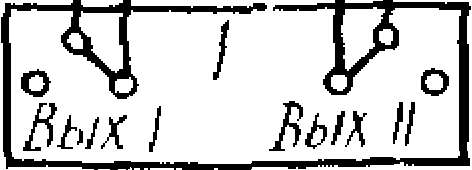 I
Вых I Вых II